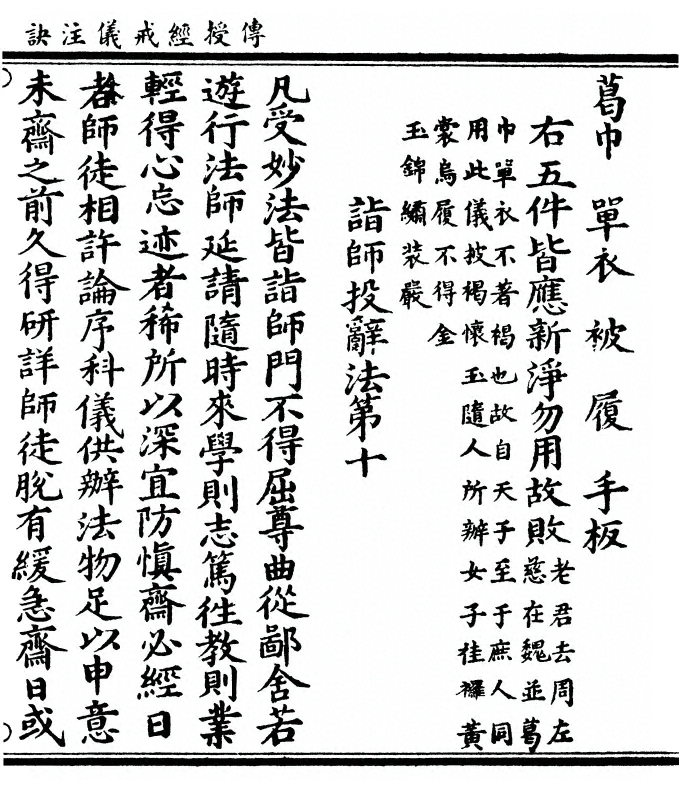 傳授經戒儀注訣
葛巾 單衣 被 履 手板
右五件皆應新淨勿用故敗老君去周左
慈在魏並葛
巾單衣不著褐也故自天子至于庶人同
用此儀披褐懷玉隨人所辦女子黃
裳烏履不得金
玉錦繡装嚴
詣師投辭法第十
凡受妙法皆詣師門不得屈尊曲從鄙舍若
遊行法師延請隨時來學則志篤徃教則業
輕得心忘迹者稀所以深宜防慎齋必經日
者師徒相許論序科儀供辦法物足以申意
未齋之前久得研詳師徒脫有緩急齋日或